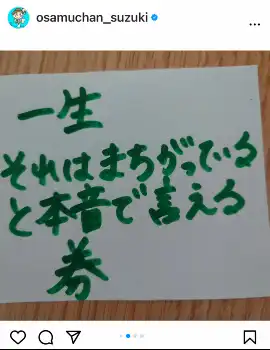 osamuchan_suzuki
一生
それはまちがっている
と本音で言える
券